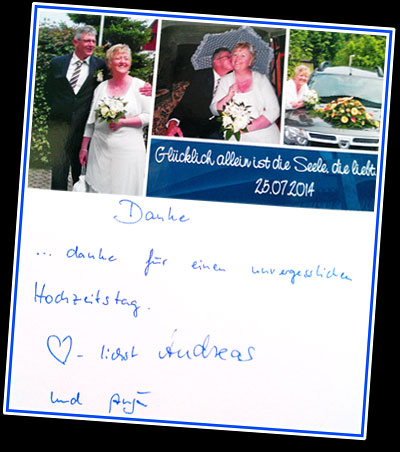 Glücklich allein ist die Seele, die liebt.
25.07.2014
Danke
... danke für einen unvergesslichen
Hochzeitstag.
♡ - lichst Andreas
und Anja